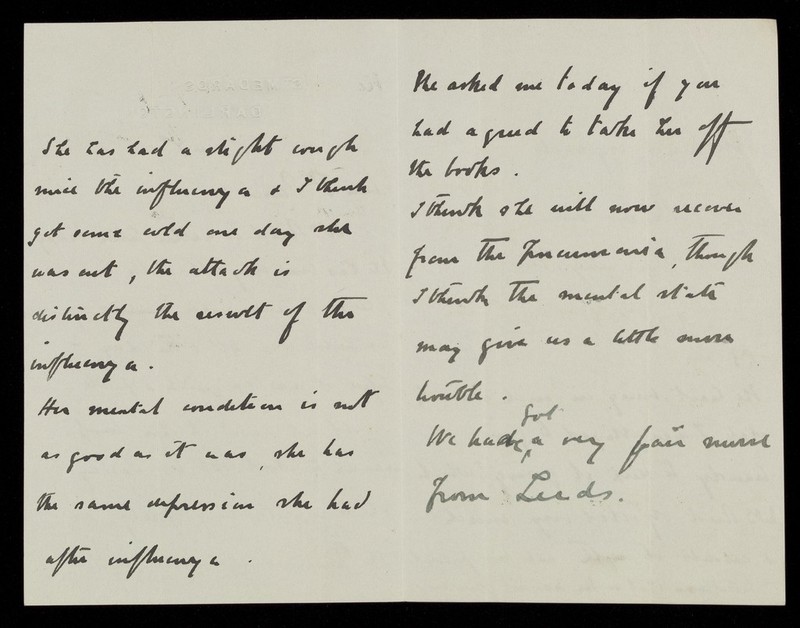 She has had a slight cough
since the influenza & I think
got some cold one day she
was out, the attack is
distinctly the result of the
influenza.
Her mental condition is not
as good as it was, she has
the same depression she had
after influenza.
He asked me today if you
had agreed to take her off
the books.
I think she will now recover
from the Pneumonia, though
I think the mental state
may give us a little more
trouble.
We have got a very fair nurse
from Leeds.